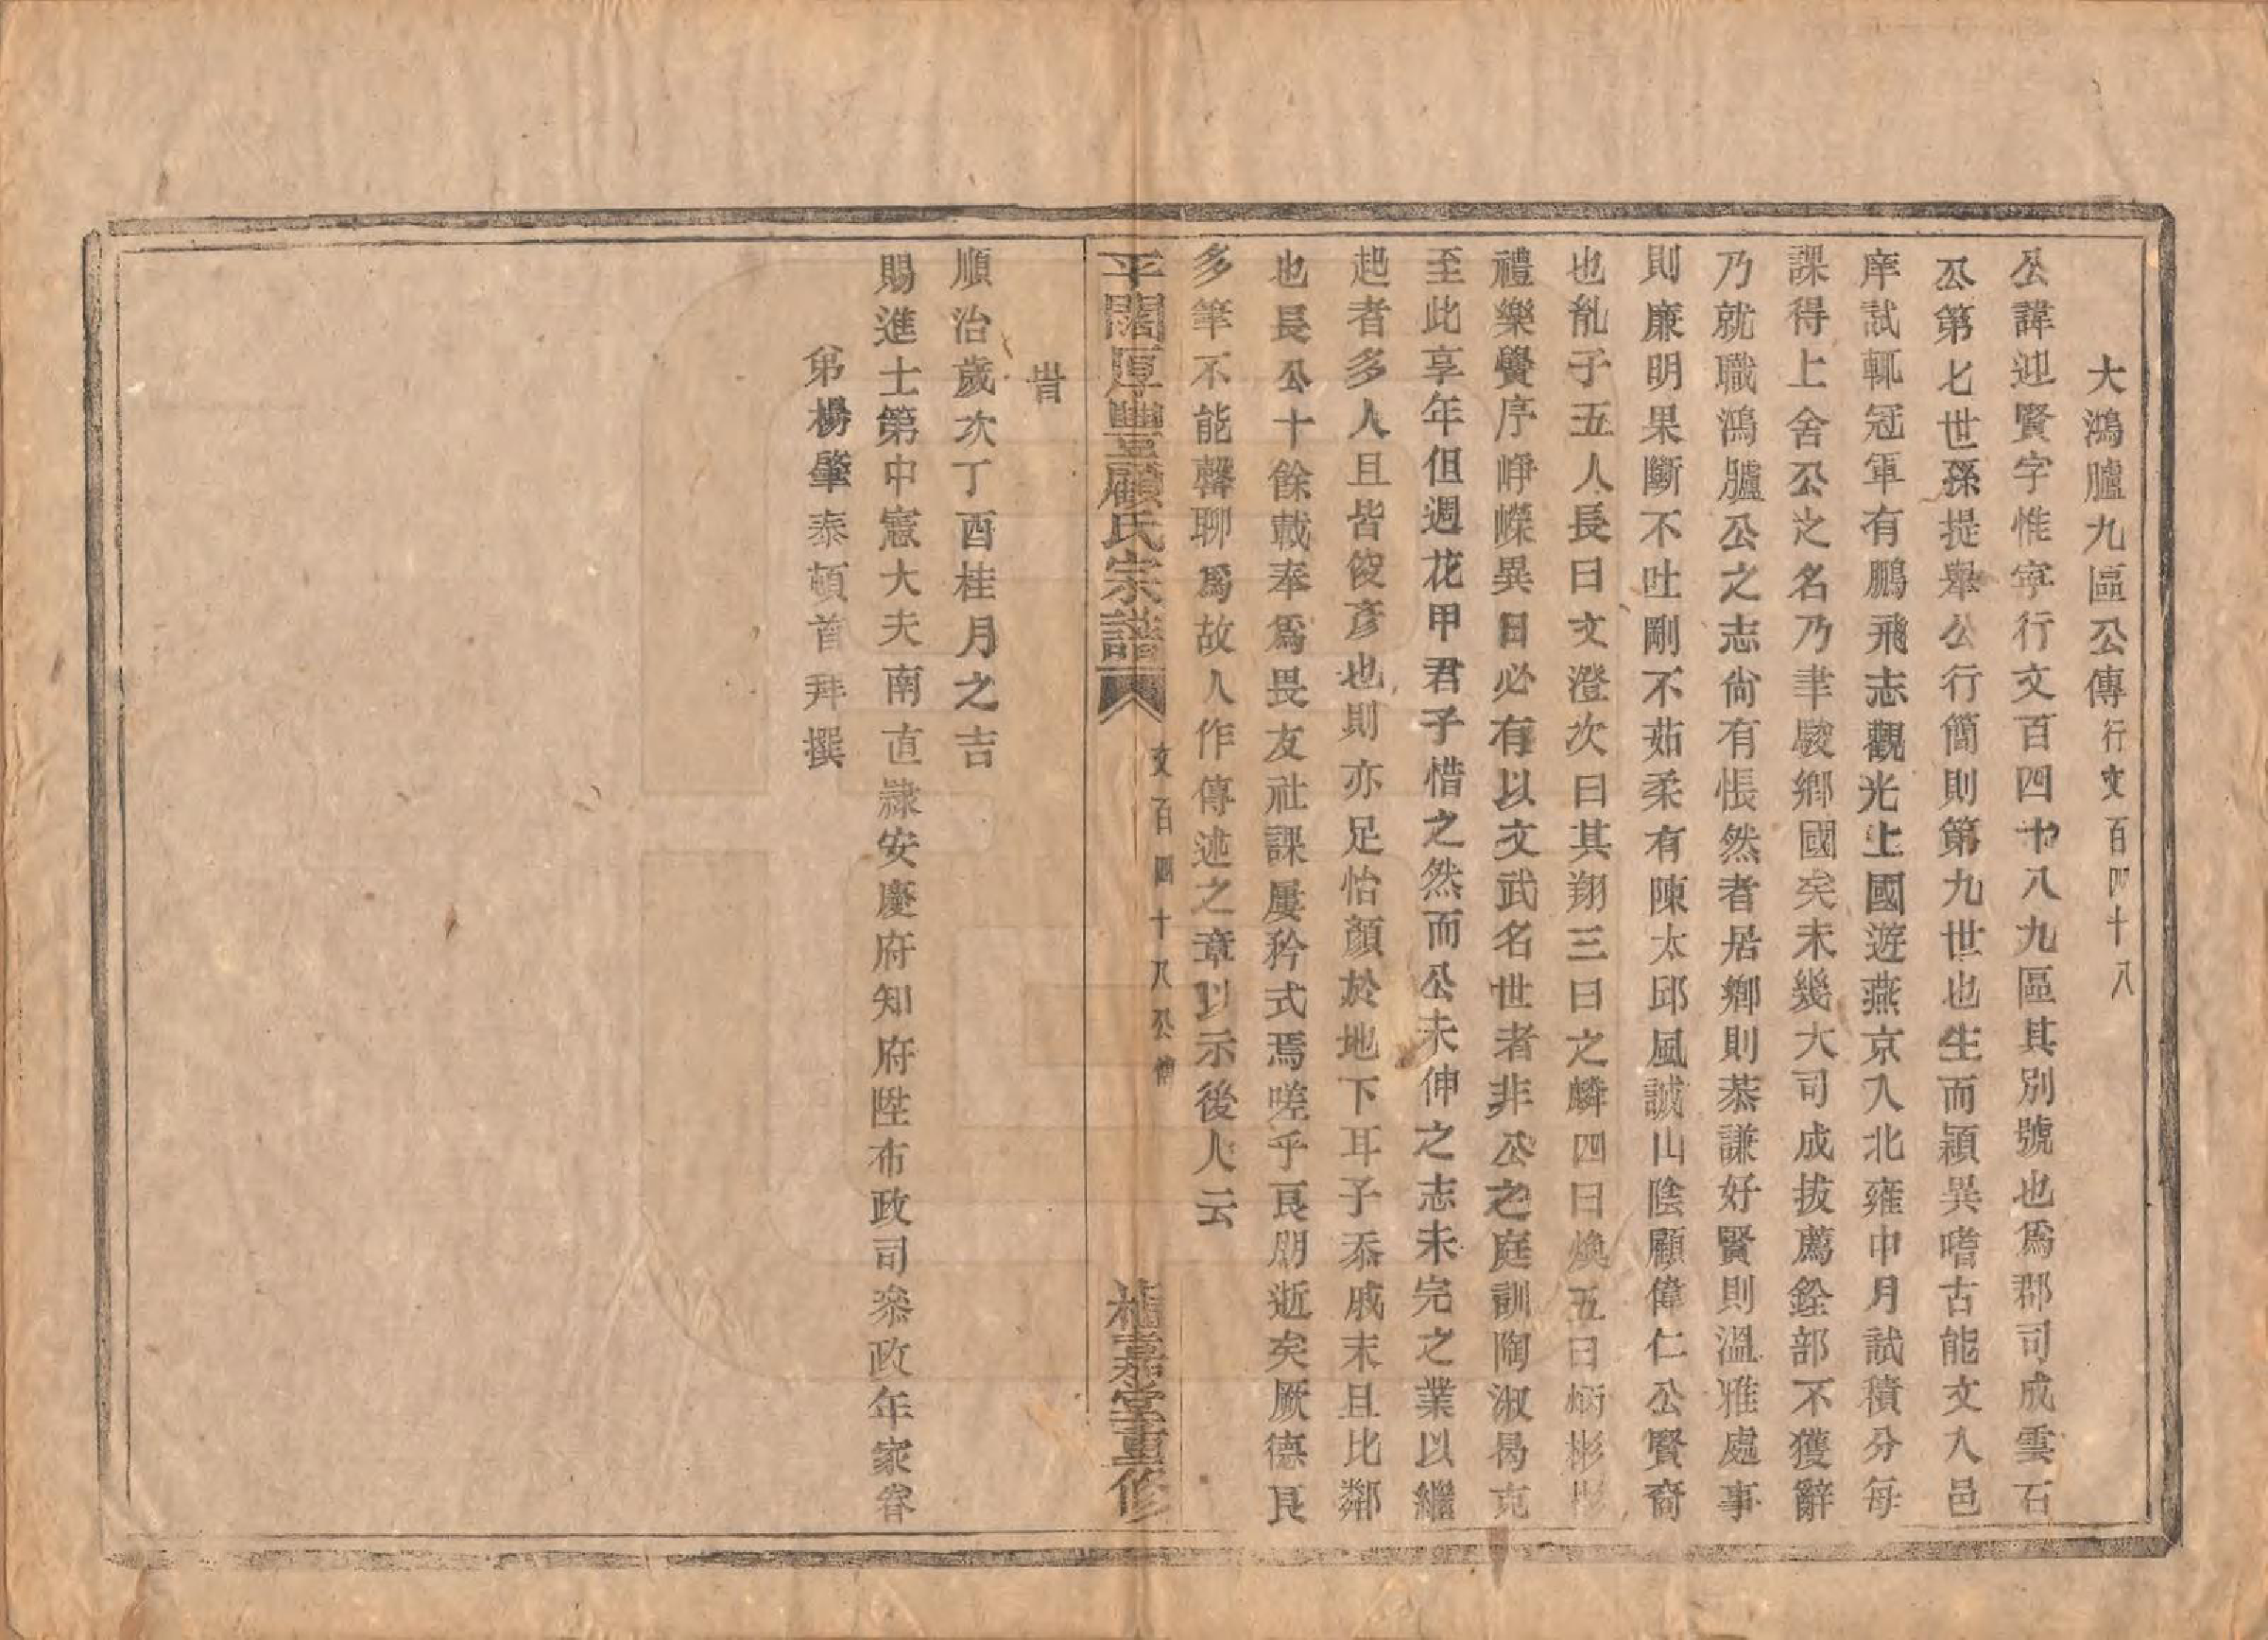 大鴻臚九區公傳行文百四十八
公諱迎賢字惟寧行文百四十八九區其別號也爲郡司成雲石
公第七世孫提舉公行簡則第九世也生而穎異嗜古能文入邑
庠試輒冠軍有鵬飛志觀光上國遊燕京入北雍中月試積分每
課得上舍公之名乃聿駿鄉國矣未幾大司成拔薦銓部不獲辭
乃就職鴻臚公之志尙有悵然者居鄉則恭謙好賢則溫雅處事
則廉明果斷不吐剛不茹柔有陳太邱風誠山陰顧偉仁公賢裔
也胤子五人長曰文澄次曰其翔三曰之麟四曰煥五曰炳彬彬
禮樂黌序崢嶸異日必有以文武名世者非公之庭訓陶淑曷克
至此享年但週花甲君子惜之然而公未伸之志未完之業以繼
起者多人且皆俊彥也則亦足怡顏於地下耳予忝戚末且比鄰
也長公十餘載奉爲畏友社課屢矜式焉嗟乎良朋逝矣厥德良
多筆不能罄聊爲故人作傳述之章以示後人云
平闊厚豐顧氏宗譜 文百四十八公傳 嘉堂重修
旹
順治歲次丁酉桂月之吉
賜進士第中憲大夫南直隷安慶府知府陞布政司叅政年家眷
弟楊肇泰頓首拜撰